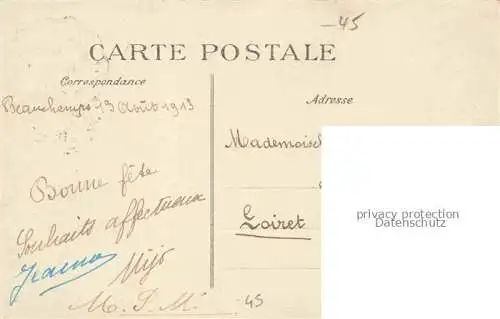 -45
CARTE POSTALE
Correspondance
Adresse
Beauchamps 13 Août 1913
Mademoisel
Bonne fête
Souhaits affectueux
Loiret
privacy protection
Datenschutz
Mijo
M. P. M.
45